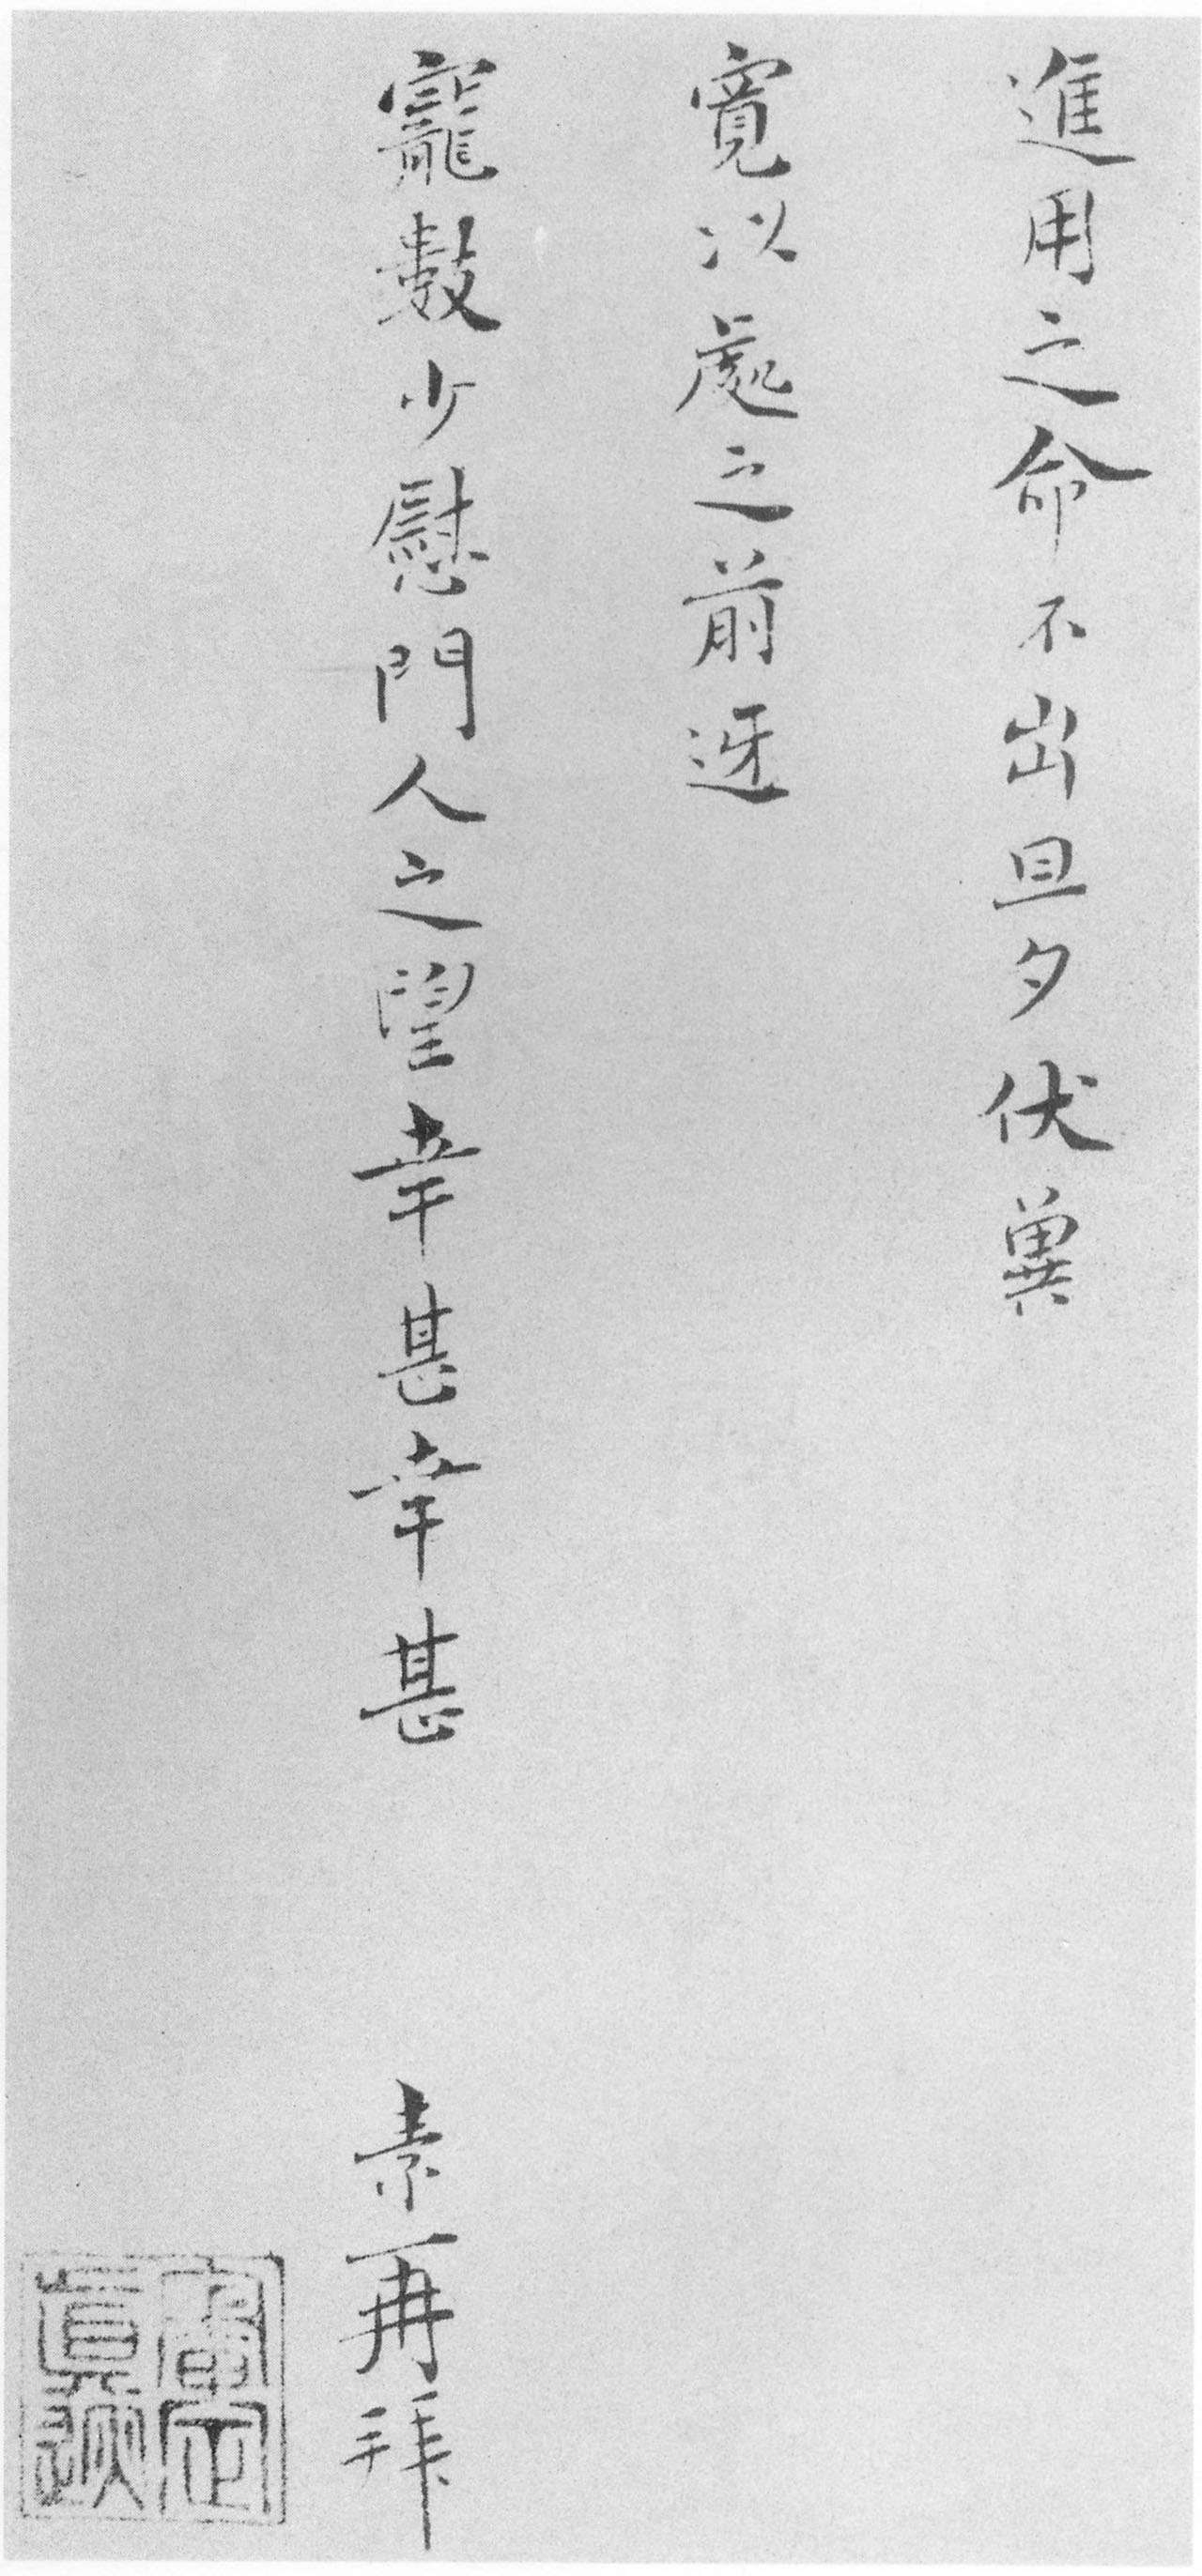 進用之命不出旦夕伏冀
寬以處之前迓
寵數少慰門人之望幸甚幸甚
素再拜
審定真跡